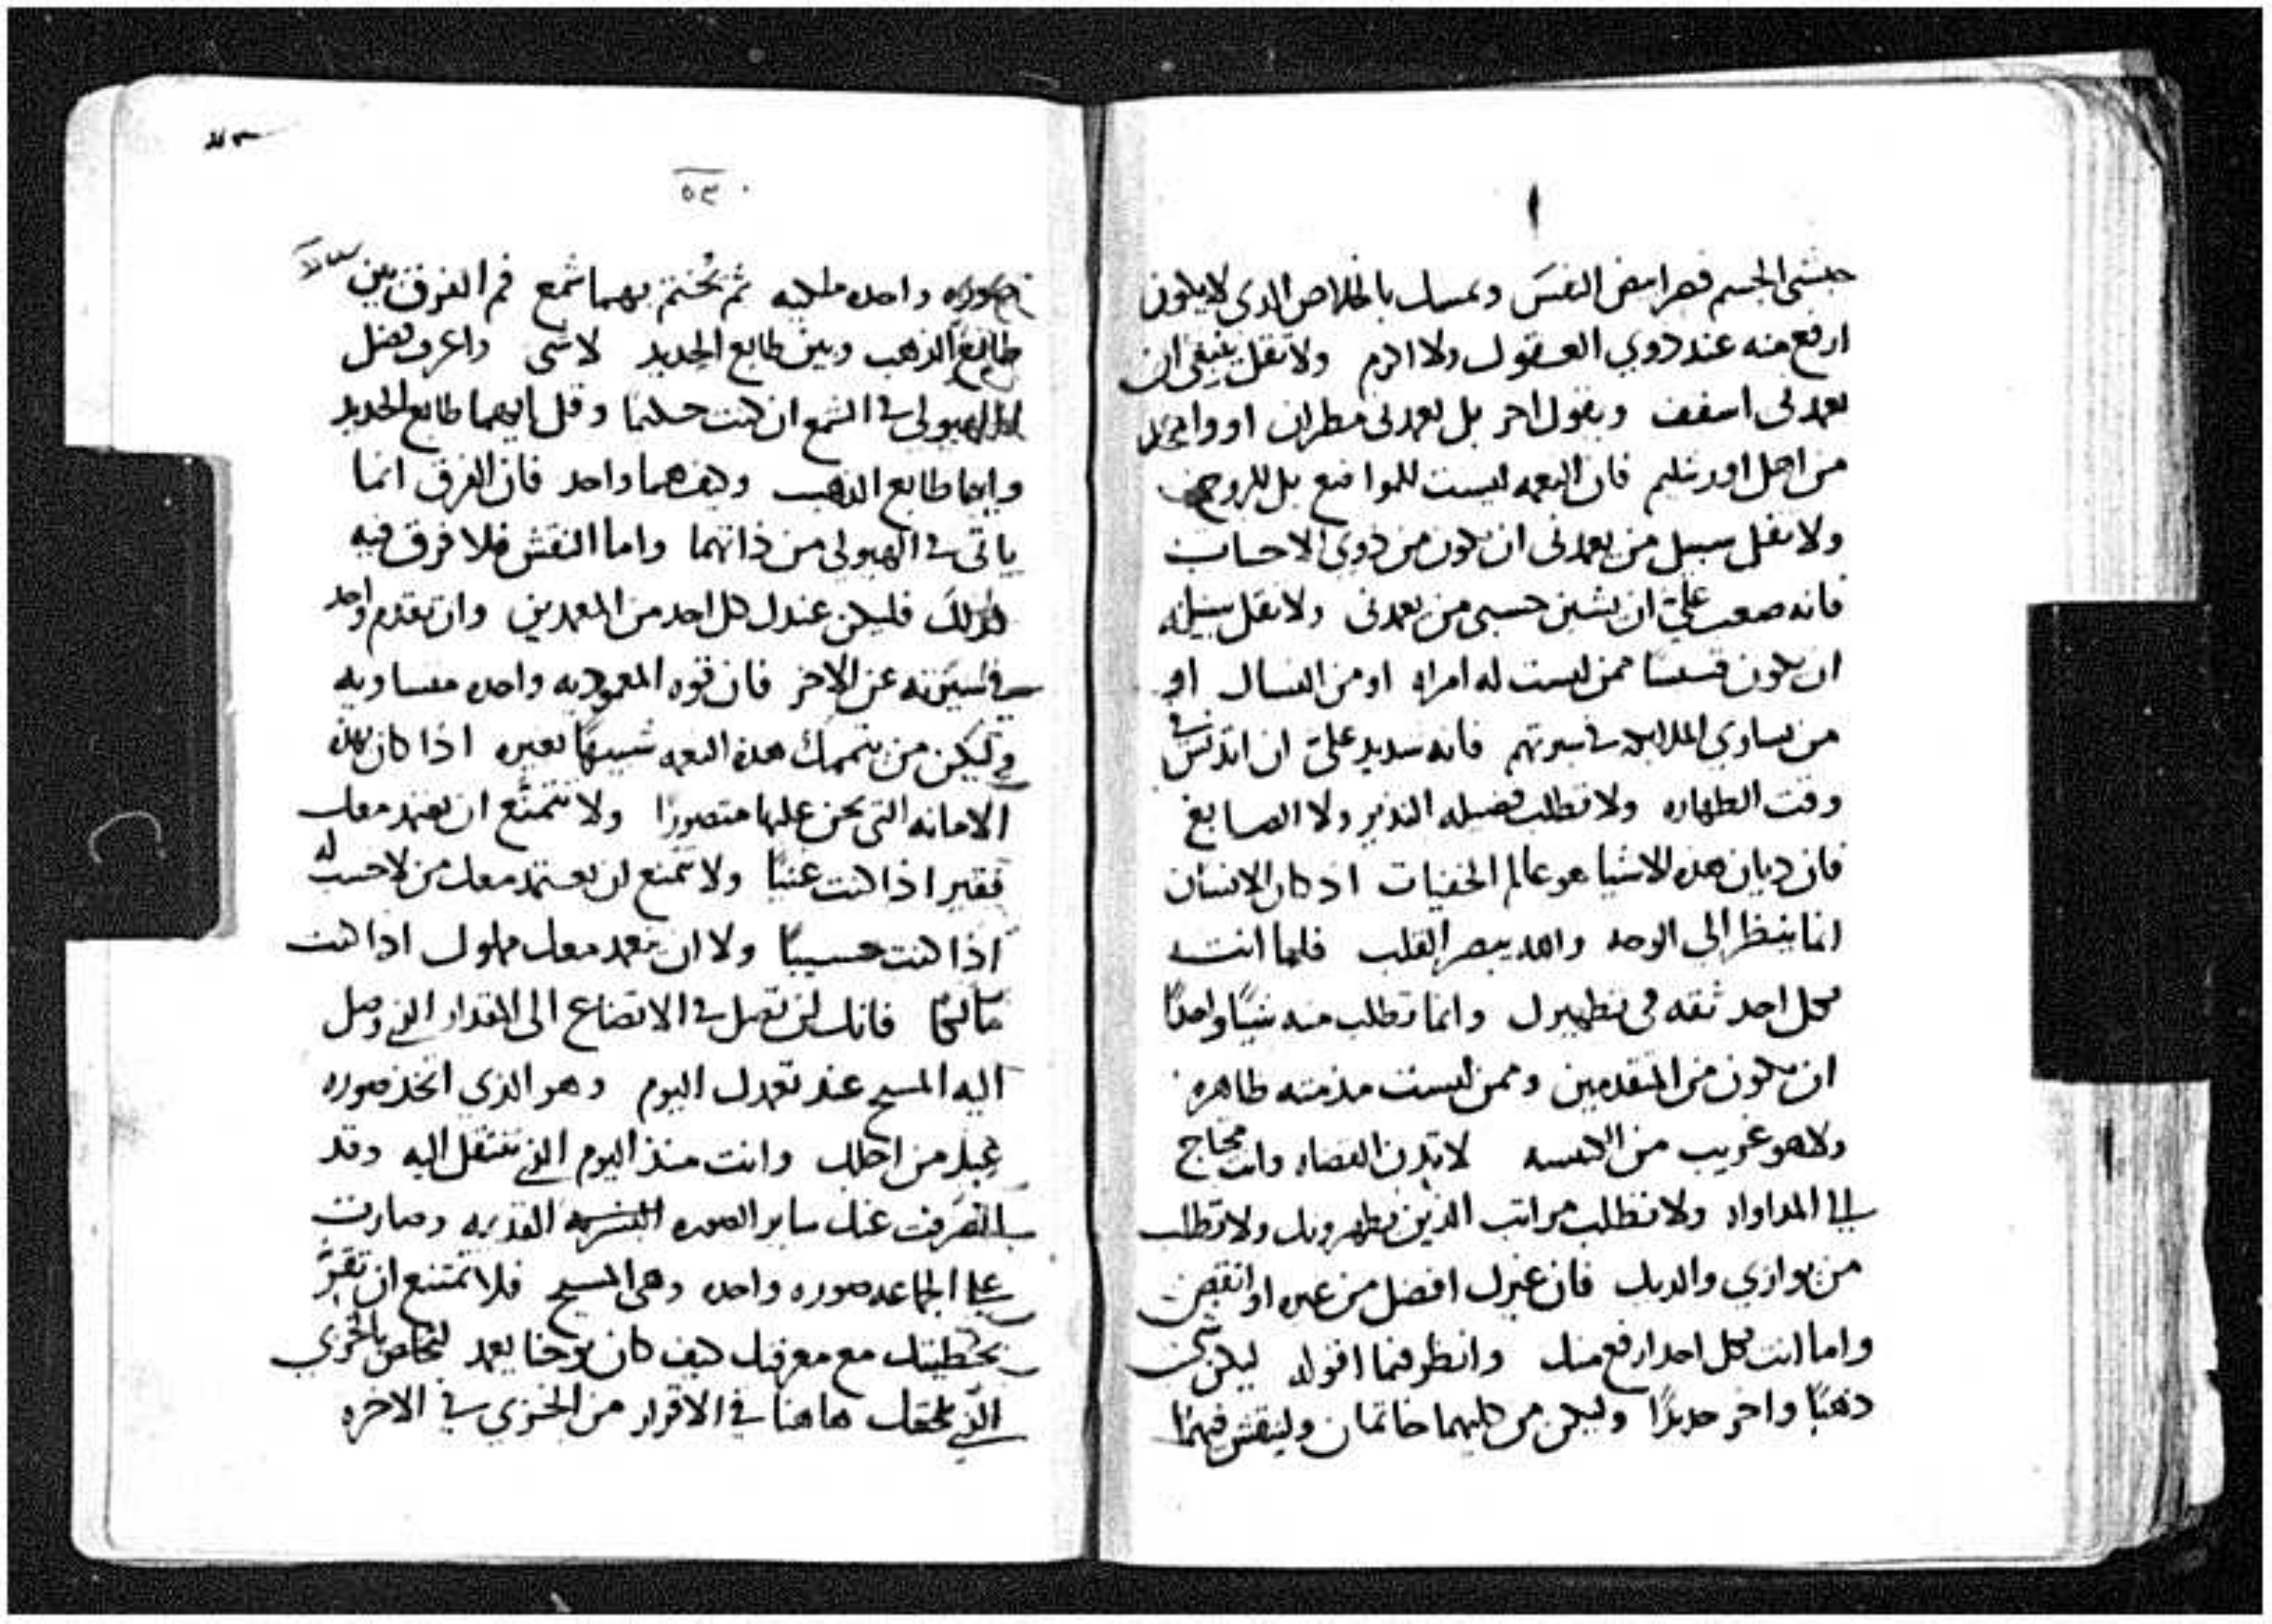 حبشي الجسم فهر ابيض النفس وتمسك بالخلاص الدى لا يكون
ارفع منه عند دوي العقول ولا اكرم ولا تقل ينبغي ان
يعمدنى اسقف ويقول اخر بل يعمدنى مطران او واحد
من اهل اورشليم فان النعمه ليست للمواضع بل للروح
ولا تقل سبيل من يعمدنى ان يكون من دوي الاحساب
فانه صعب علي ان يشين حسبى من يعمدنى ولا تقل سبيله
ان يكون قسيسا ممن ليست له امراه او من النساك او
من يساوي الملايكه في سيرتهم فانه شديد علي ان اتدنس في
وقت الطهاره ولا تطلب فضيله النذير ولا الصابغ
فان ديان هده الاشيا هو عالم الخفيات اد كان الانسان
انما ينظر الى الوجه والله يبصر القلب فاما انت
فكل احد ثقه في تطهيرك وانما تطلب منه شيًا واحدًا
ان يكون من المتقدمين وممن ليست مذمته ظاهره
ولا هو غريب من الكنيسه لا تدن القضاه وانت محتاج
الى المداواه ولا تطلب مراتب الذين يطهرونك ولا تطلب
من يوازي والديك فان غيرك افضل من غيره او انقص
واما انت فكل احد ارفع منك وانظر فيما اقوله ليكن
ذهبًا واخر حديدًا وليكن من كليهما خاتمان ولينقش فيهما
٥٣
صوره واحده ملكيه ثم يُختم بهما شمع فم الفرق بين
طابع الذهب وبين طابع الحديد لا شى واعرف فضل
الهيولى في الشمع ان كنت حكيمًا وقل ايهما طابع الحديد
وايهما طابع الدهب وكيف هما واحد فان الفرق انما
ياتى في الهيولى من ذاتهما واما النقش فلا فرق فيه
كذلك فليكن عندك كل احد من المعمدين وان تقدم واحد
في سيرته عن الاخر فان قوه المعموديه واحده متساويه
وليكن من يتممك هده النعمه شبيهًا بغيره اذا كان بهذه
الامانه التي نحن عليها متصورًا ولا تتمنع ان يعتمد معك
فقير اذا كنت غنيًا ولا تمتنع ان يعتمد معك من لا حسب له
اذا كنت حسيبًا ولا ان يعمد معك مملوك اذا كنت
مالكًا فانك لن تصل في الاتضاع الى المقدار الذي وصل
اليه المسيح عند تعمدك اليوم وهو الذي اتخذ صوره
عبد من اجلك وانت منذ اليوم الذي تنتقل اليه وقد
انصرفت عنك ساير الصوره القديمه وصارت
على الجماعه صوره واحده وهي المسيح فلا تمتنع ان تقرّ
بخطيتك مع معرفتك كيف كان يوحنا يعمد لتخلص بالخزي
الذي يلحقك هاهنا في الاقرار من الخزي في الاخره